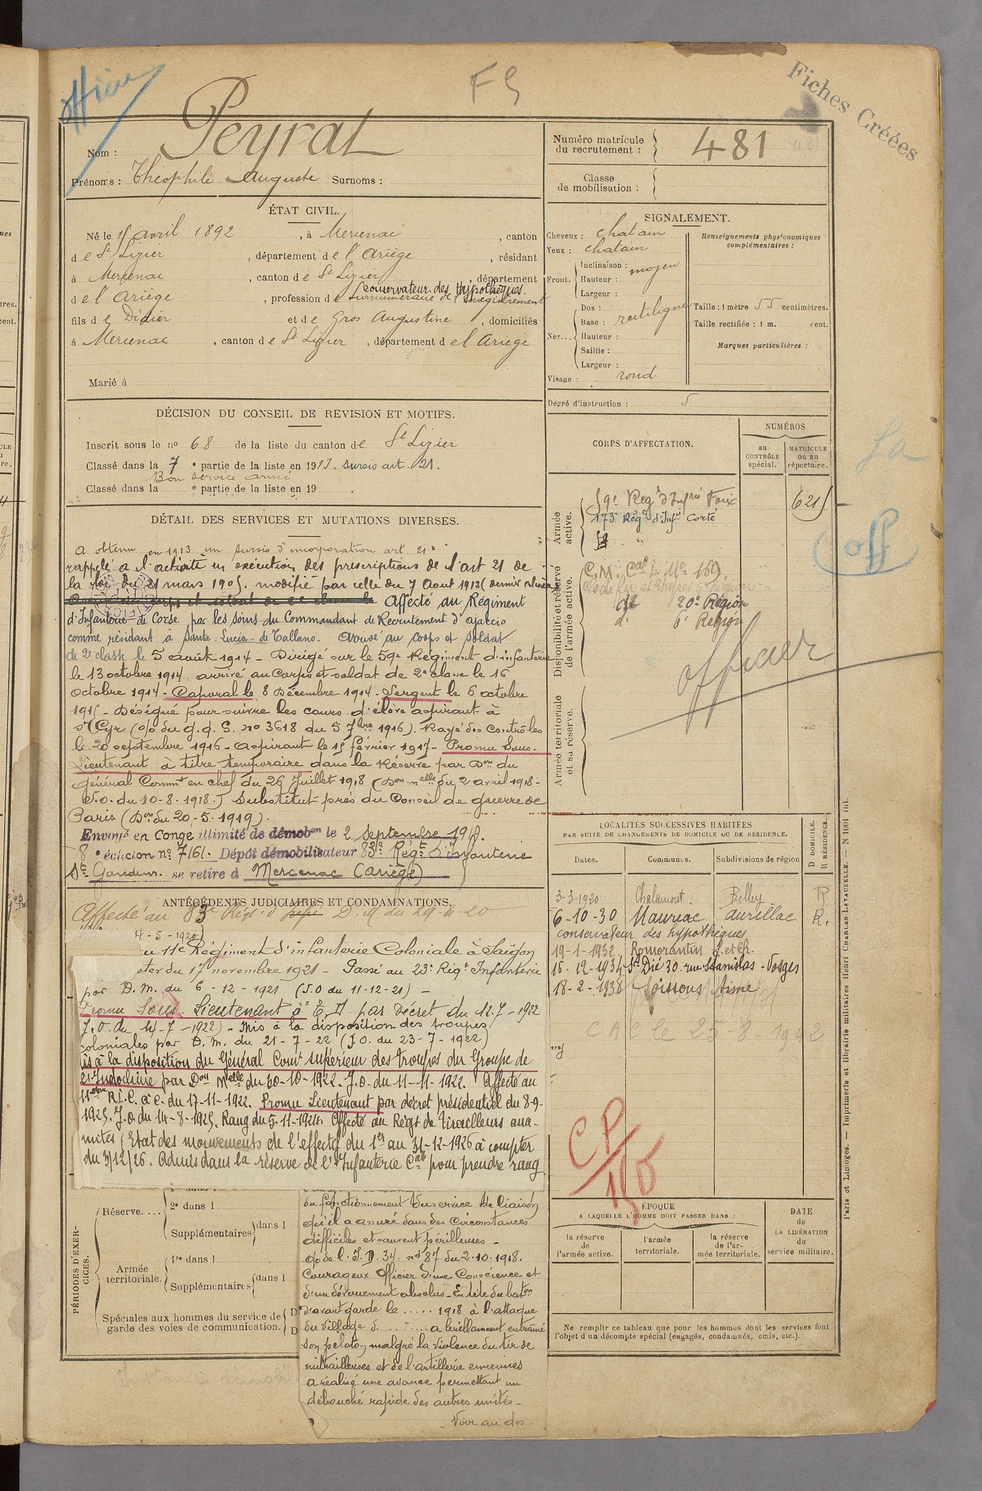 officier
F9
Fiches Créées
Nom : Peyrat
Prénoms : Théophile Auguste Surnoms :
Numéro matricule du recrutement : 481
Classe de mobilisation :
ÉTAT CIVIL.
Né le 15 avril 1892, à Mercenac, canton
de St Lizier, département de l'Ariège, résidant
à Mercenac, canton de St Lizier, département
Conservateur des Hypothèques.
de l'Ariège, profession de Surnuméraire de l'enregistrement
fils de Didier et de Gros Augustine, domiciliés
à Mercenac, canton de St Lizier, département de l'Ariège
Marié à
SIGNALEMENT.
Cheveux : chatain
Yeux : chatain
Front. Inclinaison : moyen
Hauteur :
Largeur :
Nez... Dos : rectiligne
Base :
Hauteur :
Saillie :
Largeur :
Visage : rond
Renseignements physionomiques complémentaires :
Taille : 1 mètre 55 centimètres.
Taille rectifiée : 1 m. cent.
Marques particulières :
Degré d'instruction : 5
DÉCISION DU CONSEIL DE REVISION ET MOTIFS.
Inscrit sous le no 68 de la liste du canton de St Lizier
Classé dans la 7e partie de la liste en 1913. sursis art. 21.
Bon service armé
Classé dans la e partie de la liste en 19
DÉTAIL DES SERVICES ET MUTATIONS DIVERSES.
A obtenu en 1913 un sursis d'incorporation art. 21.
rappelé à l'activité en exécution des prescriptions de l'art 21 de
la loi du 21 mars 1905. modifié par celle du 7 Aout 1913
Affecté au Régiment
d'Infanterie de Corse par les soins du Commandant de Recrutement d'Ajaccio
comme résidant à Santa-Lucia-di-Tallano. Arrivé au corps et soldat
de 2e classe le 5 août 1914 - Dirigé sur le 59e Régiment d'infanterie
le 13 octobre 1914 arrivé au Corps et soldat de 2e classe le 16
octobre 1914 - Caporal le 8 Décembre 1914 - Sergent le 6 octobre
1915 - Désigné pour suivre les cours d'élève aspirant à
St Cyr (o/o du G.Q.G. no 3618 du 5 7bre 1916). Rayé des contrôles
le 20 septembre 1916 - aspirant le 15 février 1917 - Promu Sous-
Lieutenant à titre temporaire dans la Réserve par Don du
Général Commt en chef du 26 Juillet 1918
J.O. du 10-8-1918.) Substitut près du Conseil de guerre de
Paris (Don du 20-5-1919).
Envoyé en congé illimité de démobon le 2 septembre 1919.
8e échelon no 7161. Dépôt démobilisateur 83e Régt d'Infanterie
St Gaudens. se retire à Mercenac (Ariège)
ANTÉCÉDENTS JUDICIAIRES ET CONDAMNATIONS.
Affecté au 83e Régt d'Infie D.M. du 29-4-20
4-5-1920)
au 11e Régiment d'infanterie Coloniale à Saïgon
du 17 novembre 1921 - Passé au 23e Régt Infanterie
par D.M. du 6-12-1921 (J.O du 11-12-21) -
Promu Sous-Lieutenant à T.D par Décret du 11-7-1922
J.O. du 14-7-1922) - Mis à la disposition des troupes
coloniales par D.M. du 21-7-22 (J.O. du 23-7-1922)
Mis à la disposition du Général Comt supérieur des troupes du Groupe de
l'Indochine par Don Melle du 30-10-1922. J.O. du 11-11-1922. Affecté au
11ème R.I.C. à c. du 17-11-1922. Promu Lieutenant par décret présidentiel du 8-9-
1925. J.O. du 14-8-1925. Rang du 5-11-1924. Affecté au Régt de Tirailleurs anna-
mites (Etat des mouvements de l'effectif du 1er au 31-12-1926 à compter
du 31/12/26. Admis dans la réserve de l'Infanterie Cale pour prendre rang
PÉRIODES D'EXERCICES.
Réserve.... 2e dans l
Supplémentaires dans l
Armée territoriale. 1re dans l
Supplémentaires dans l
Spéciales aux hommes du service de garde des voies de communication.
du fonctionnement du service de liaison
qu'il a assuré dans des circonstances
difficiles et souvent périlleuses -
o/o de l'I.D. 34. no 87 du 2.10.1918.
Courageux officier d'une Conscience et
d'un dévouement absolus - En tête du baton
d'avant garde le ..... 1918 à l'attaque
du village d..... a brillamment entrainé
son peloton malgré la violence du tir de
mitrailleuses et de l'artillerie ennemies
a réalisé une avance permettant un
débouché rapide des autres unités -
Voir au dos -
CORPS D'AFFECTATION.
NUMÉROS
au CONTRÔLE spécial.
MATRICULE ou au répertoire.
Armée active.
59e Régt d'Infie Foix
6215
173e Régt d'Infie Corté
Disponibilité et réserve de l'armée active.
20e Région
do 6e Région
officier
Armée territoriale et sa réserve.
LOCALITÉS SUCCESSIVES HABITÉES
PAR SUITE DE CHANGEMENTS DE DOMICILE OU DE RÉSIDENCE.
Dates. Communes. Subdivisions de région
D DOMICILE. R RÉSIDENCE.
3-3-1920 Chalamont. Belley R
6-10-30 Mauriac Aurillac R.
conservateur des hypothèques
19-1-1932 Romorantin L.et Ch.
18-12-1934 St Dié 30 rue Stanislas - Vosges
18-2-1938 Soissons Aisne
CAC le 25-8-1942
CP
150
ÉPOQUE
A LAQUELLE L'HOMME DOIT PASSER DANS :
la réserve de l'armée active.
l'armée territoriale.
la réserve de l'armée territoriale.
DATE de LA LIBÉRATION du service militaire.
Ne remplir ce tableau que pour les hommes dont les services font
l'objet d'un décompte spécial (engagés, condamnés, omis, etc.).
Paris et Limoges. — Imprimerie et librairie militaires Henri CHARLES-LAVAUZELLE. — N 1001 int.